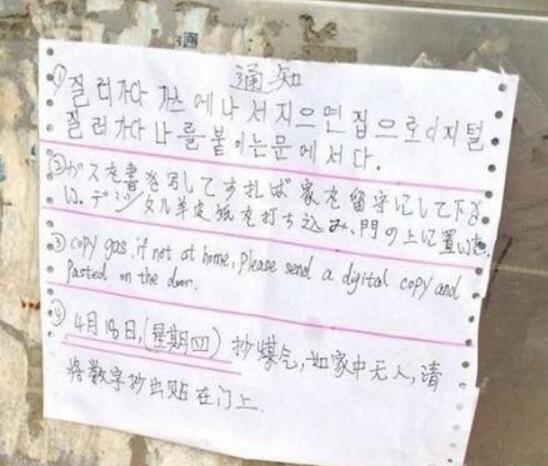 通知
① 질러가다 가스에나서지으면집으로이지털
질러가다나를붙이는문에서다.
② ガスを書き写してすれば家を留守にして下さ
い。デジタル羊皮紙を打ち込み、門の上に置いた。
③ copy gas, if not at home, please send a digital copy and
Pasted on the door.
④ 4月18日,(星期四) 抄煤气,如家中无人,请
将数字抄出贴在门上.